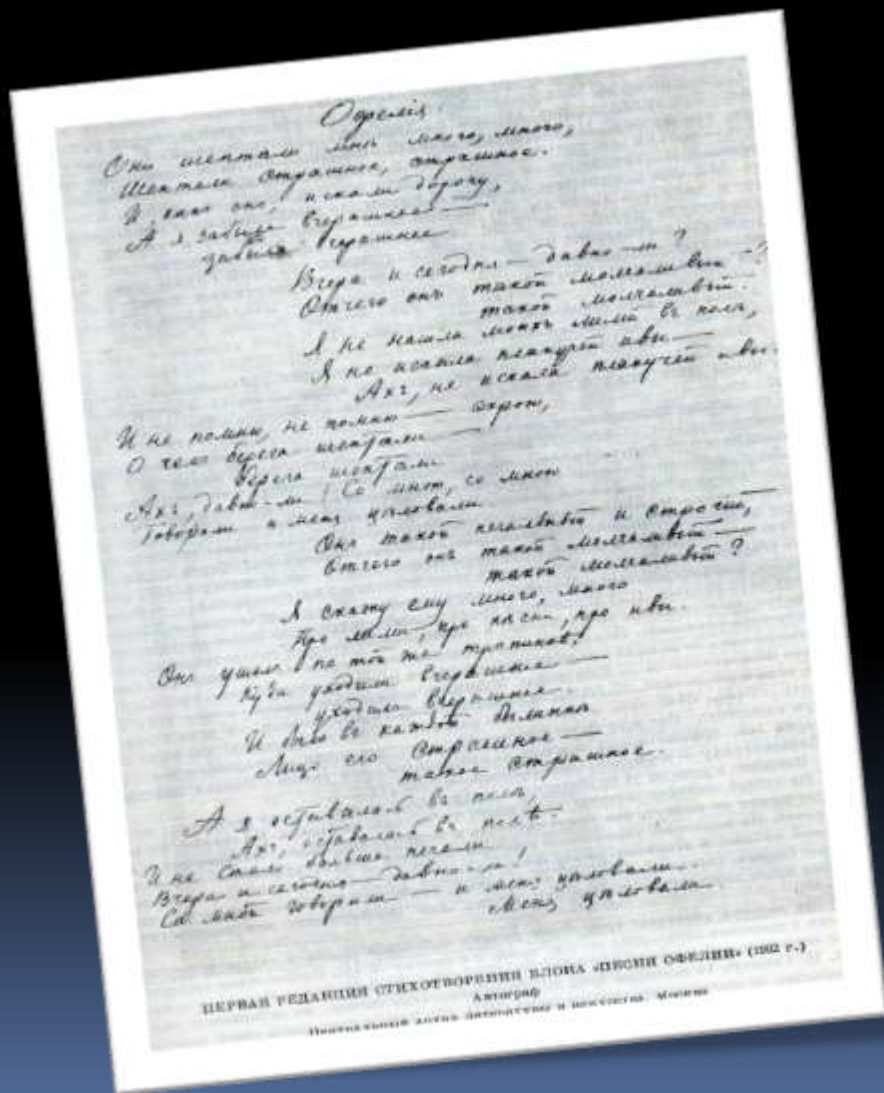 Офелія.
Они шептали мнѣ много, много,
Шептали страшное, страшное.
И, они искали дорогу,
А я забыла вчерашнее —
забыла вчерашнее
Вчера и сегодня — давно-ли?
Отчего онъ такой молчаливый —?
такой молчаливый.
Я не нашла моихъ лилій въ полѣ,
Я не искала плакучей ивы —
Ахъ, не искала плакучей ивы.
И не помню, не помню — скрою,
О чемъ берега шептали —
Берега шептали
Ахъ, давно-ли! Со мною, со мною
Говорили и меня цѣловали
Онъ такой печальный и строгій,
Отчего онъ такой молчаливый —
такой молчаливый?
Я скажу ему много, много
Про лиліи, про пѣсни, про ивы.
Онъ ушелъ по той же тропинкѣ,
Куда уходило вчерашнее —
уходило вчерашнее.
И было въ каждой былинкѣ
Лицо его страшное —
такое страшное.
А я оставалась въ полѣ,
Ахъ, оставалась въ полѣ.
И не стало больше печали
Вчера и сегодня — давно-ли!
Со мной говорили — и меня цѣловали.
Меня цѣловали.
ПЕРВАЯ РЕДАКЦИЯ СТИХОТВОРЕНИЯ БЛОКА «ПЕСНИ ОФЕЛИИ» (1902 г.)
Автограф
Центральный архив литературы и искусства, Москва